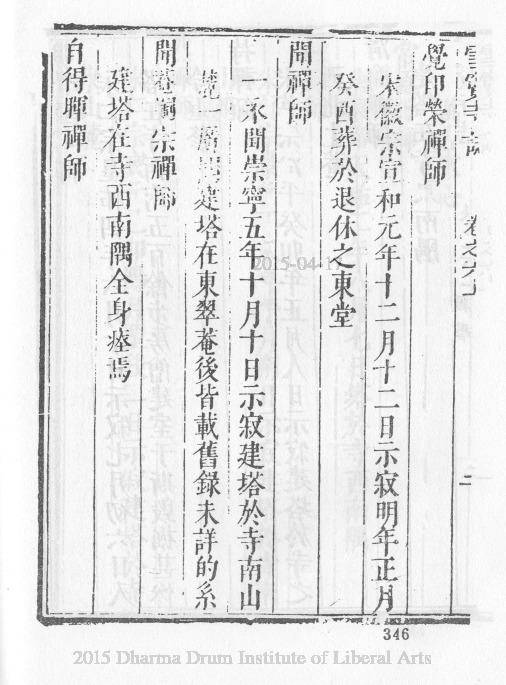 雪竇寺誌 卷之六 二
覺印榮禪師
宋徽宗宣和元年十二月十二日示寂明年正月
癸酉葬於退休之東堂
聞禪師
一永聞崇寧五年十月十日示寂建塔於寺南山
建塔在東翠菴後皆載舊錄未詳的系
聞菴嗣宗禪師
建塔在寺西南隅全身瘞焉
自得暉禪師
2015-04-17
346
2015 Dharma Drum Institute of Liberal Arts